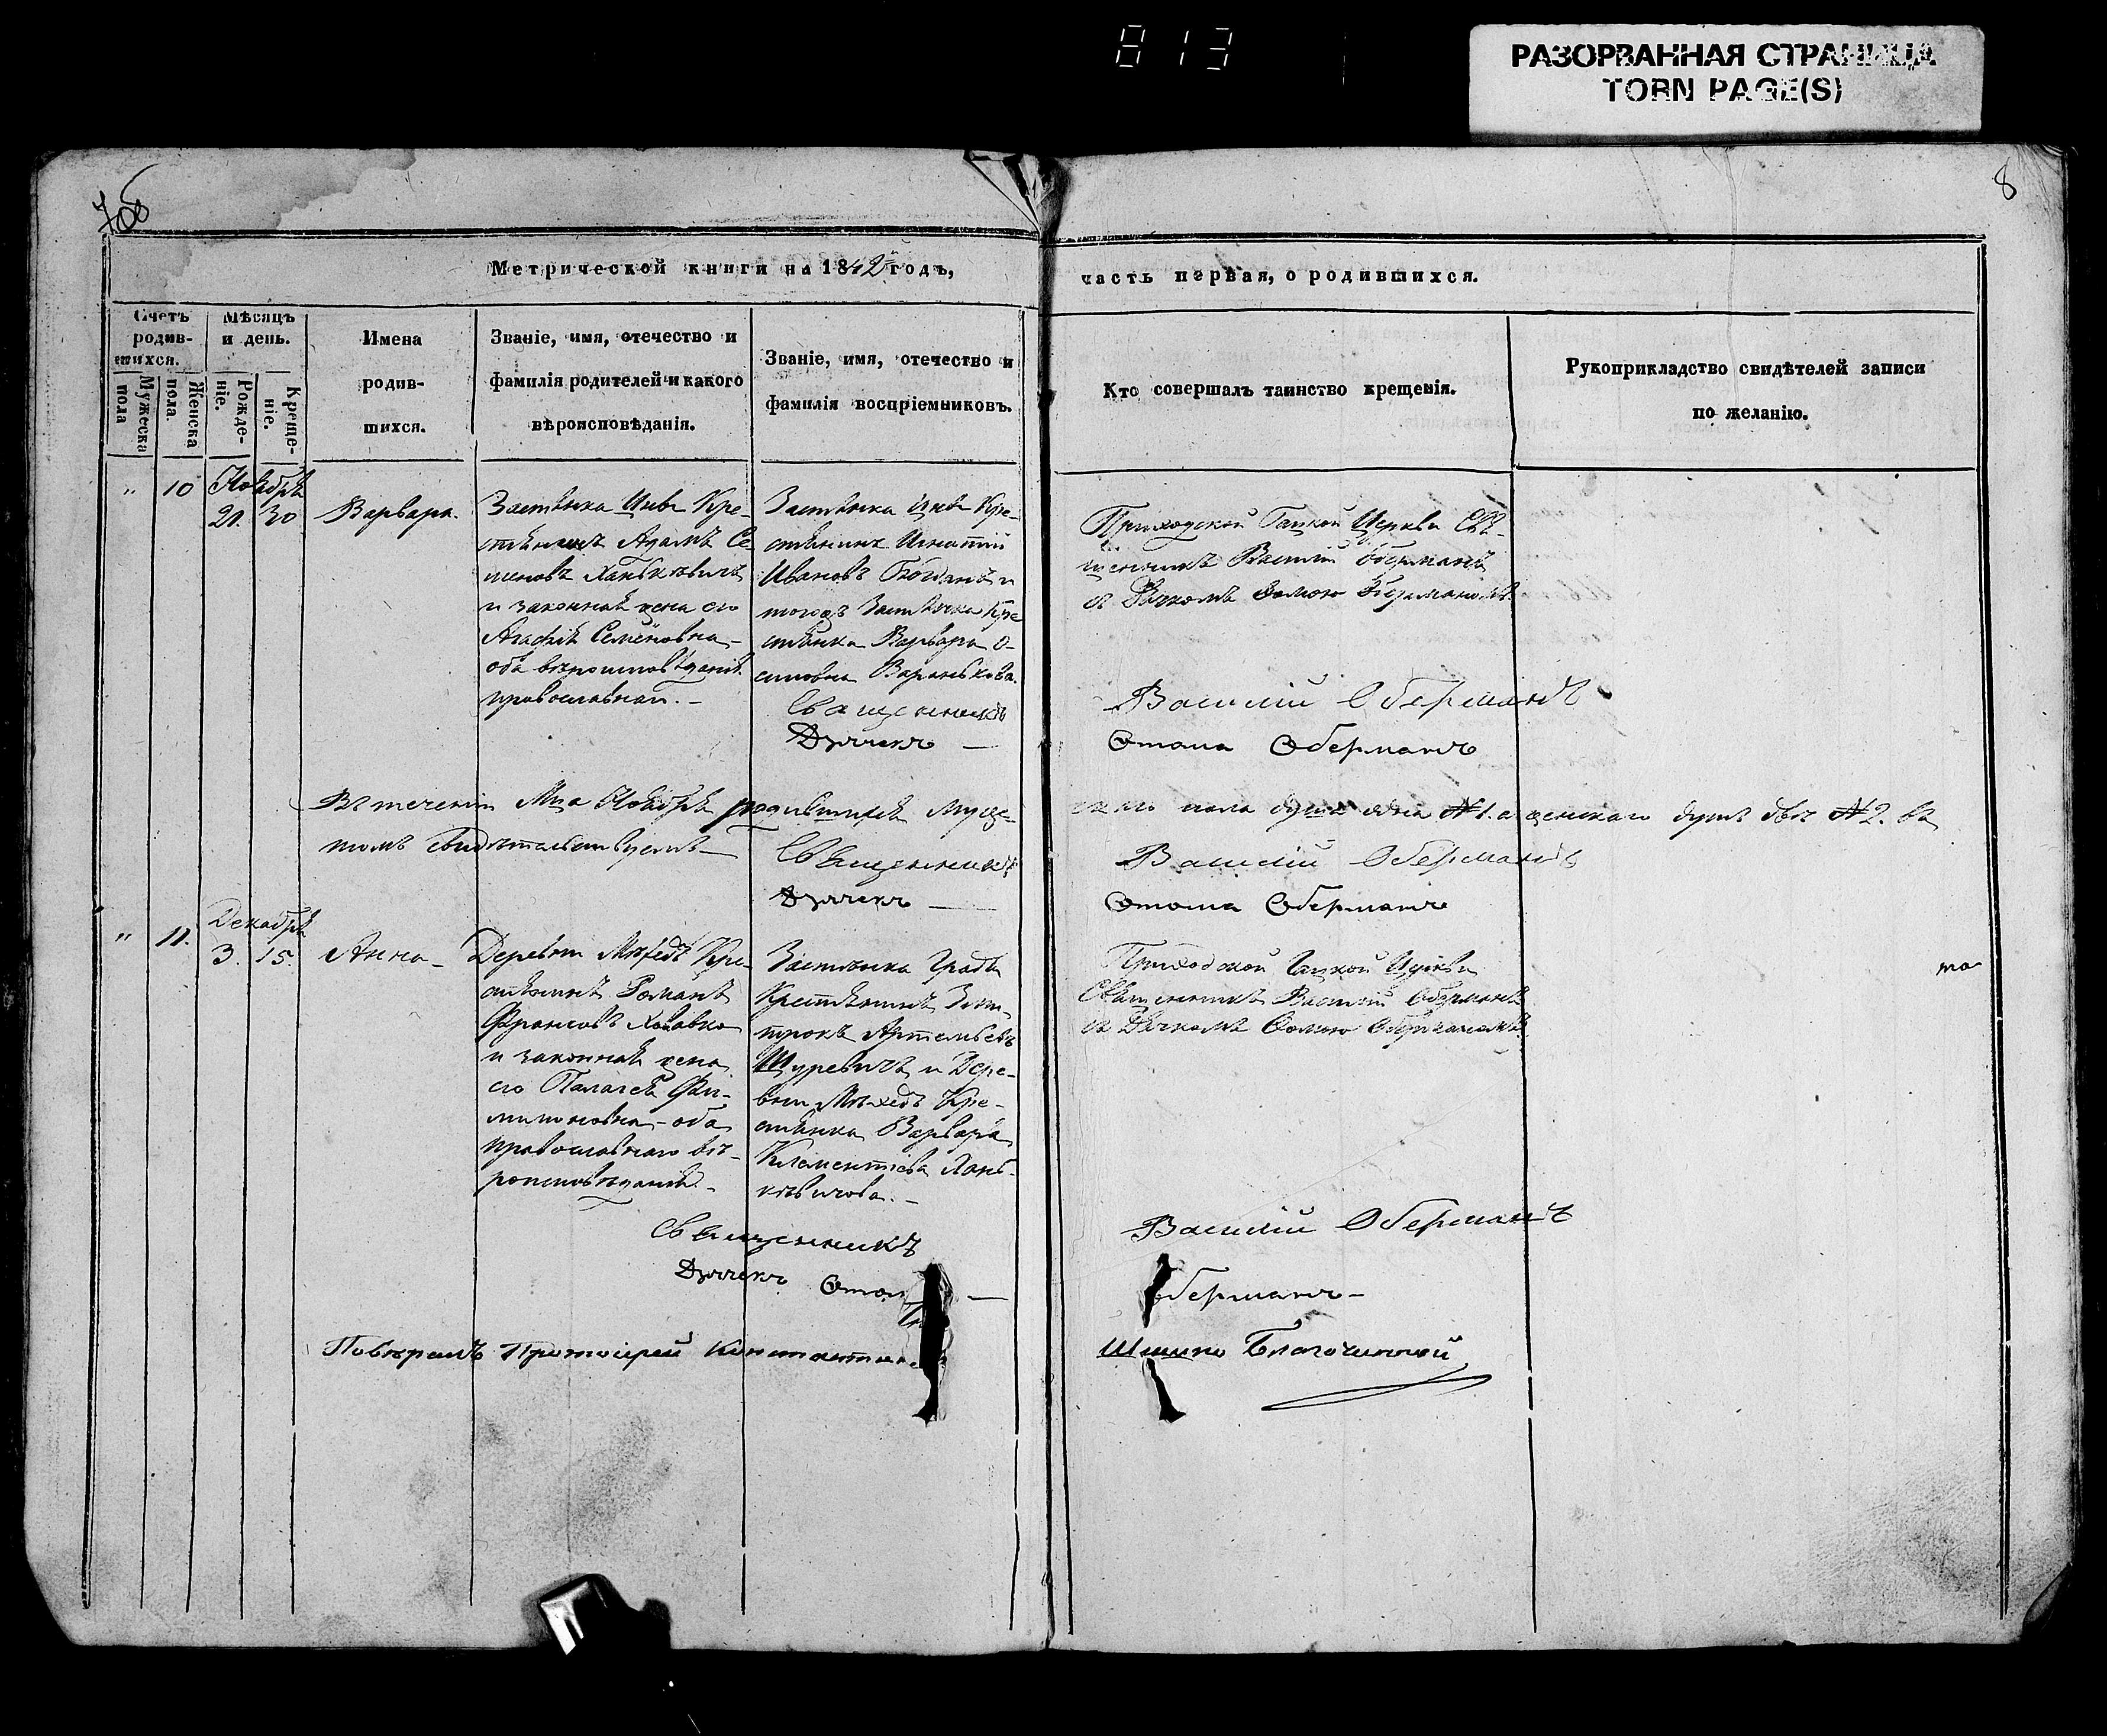 813
РАЗОРВАННАЯ СТРАНИЦА
TORN PAGE(S)
7об
8
Метрической книги на 1842 годъ,
часть первая, о родившихся.
Счетъ родив-шихся.
Мужеска пола
Женска пола.
Мѣсяцъ и день.
Рожде-ніе.
Креще-ніе.
Имена
родив-
шихся.
Званіе, имя, отечество и
фамилія родителей и какого
вѣроисповѣданія.
Званіе, имя, отечество и
фамилія воспріемниковъ.
Кто совершалъ таинство крещенія.
Рукоприкладство свидѣтелей записи
по желанію.
" 10 Ноября
21. 30
Варвара.
Застѣнка Кре-
стьянинъ Адамъ Се
меновъ Ханькѣвичъ
и законная жена его
Агафія Семёновна
оба вѣроисповѣданія
православнаго.
Застѣнка Кре-
стьянинъ Игнатій
Ивановъ и
тогожъ Застѣнка Кре
стьянка Варвара О-
сиповна
Священникъ
Дьячекъ
Приходской Гацкой Церкви Свя-
щенникъ Василій Оберманъ
съ Дьячкомъ Ѳомою Оберманомъ
Василій Оберманъ
Ѳома Оберманъ
Въ теченіи Мца Ноября родившихся Мужес-
каго пола душа одна №1. а женскаго душъ двѣ №2. въ
томъ свидѣтельствуемъ
Священникъ
Василій Оберманъ
Дьячекъ
Ѳома Оберманъ
" 11. Декабря
3. 15.
Анна
Деревни Кре-
стьянинъ Романъ
и законная жена
его Палагея Фи-
лимоновна оба
православнаго вѣ-
роисповѣданія.
Застѣнка
Крестьянинъ
Артемьевъ
Щуревичъ и Дере-
вни Кре-
стьянка Варвара
Климентіева Хань-
кѣвичова.
Приходской Гацкой Церкви
Священникъ Василій Оберманъ
съ Дьячкомъ Ѳомою Оберманомъ
та
Священникъ
Василій Оберманъ
Дьячекъ
Оберманъ
Повѣрялъ Протоіерей
Благочинный